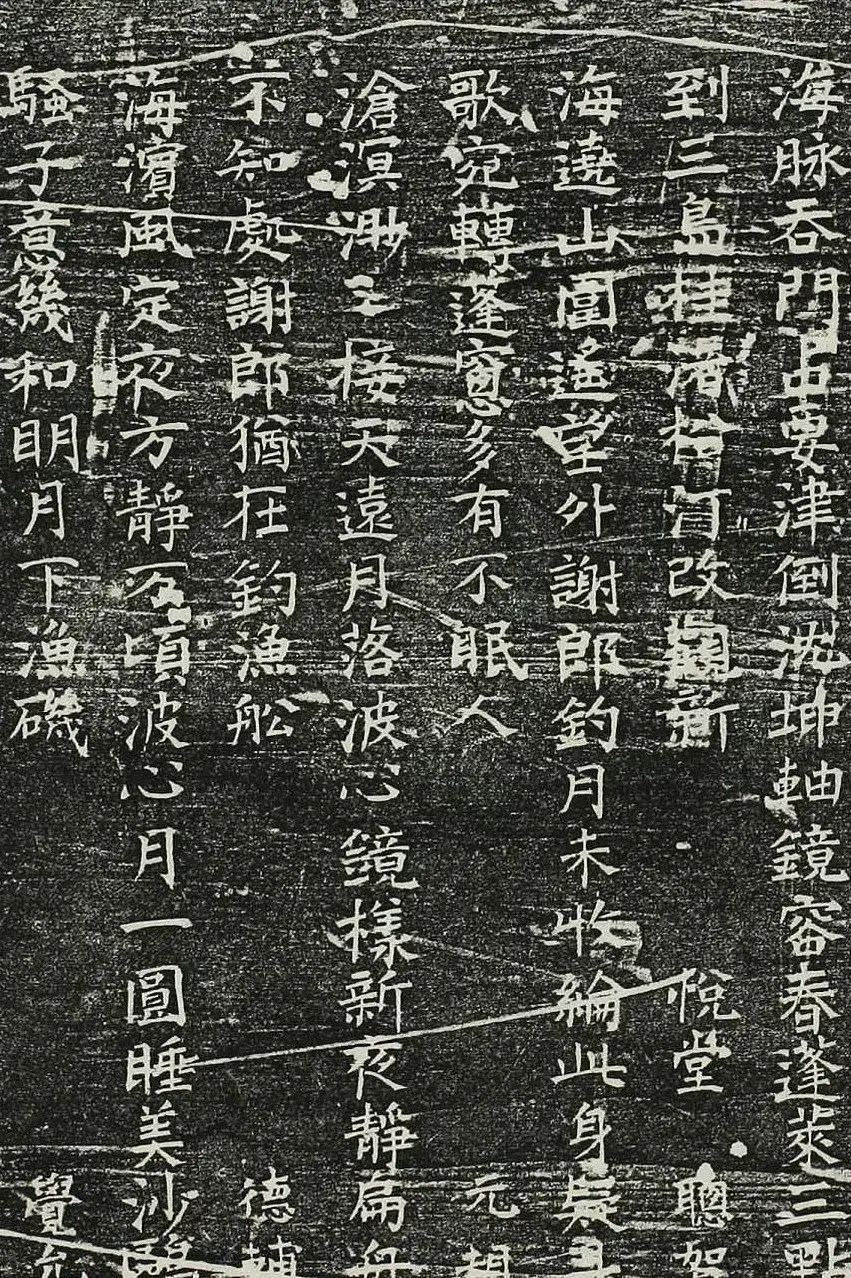 海脉吞門占要津倒沈坤軸鏡春蓬萊三點
到三島桂渚汀改觀新 悅堂 聰
海遶山圍遙望外謝郎釣月未收綸此身疑
歌宛轉蓬窻多有不眠人 元
滄溟渺〻接天遠月落波心鏡樣新夜靜扁舟
不知處謝郎猶在釣漁舩 德輔
海濱風定夜方靜万頃波心月一圓睡美沙鷗
騷子意幾和明月下漁磯 覺